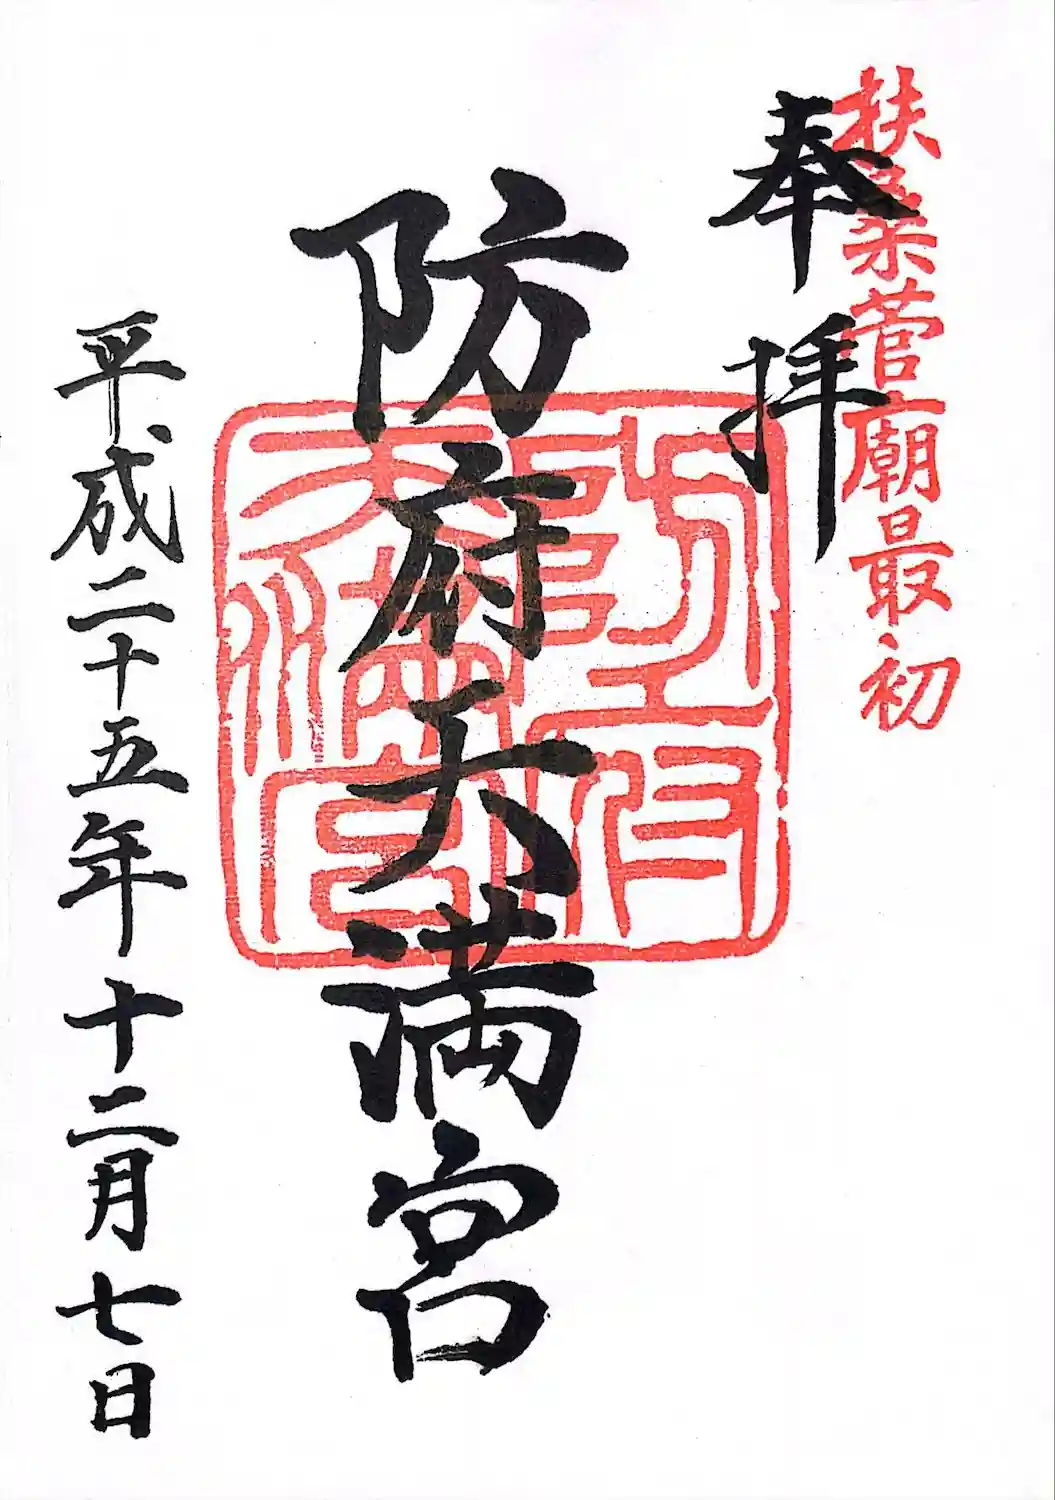 扶桑菅廟最初
奉拝
防府天満宮
防府天満宮
平成二十五年十二月七日